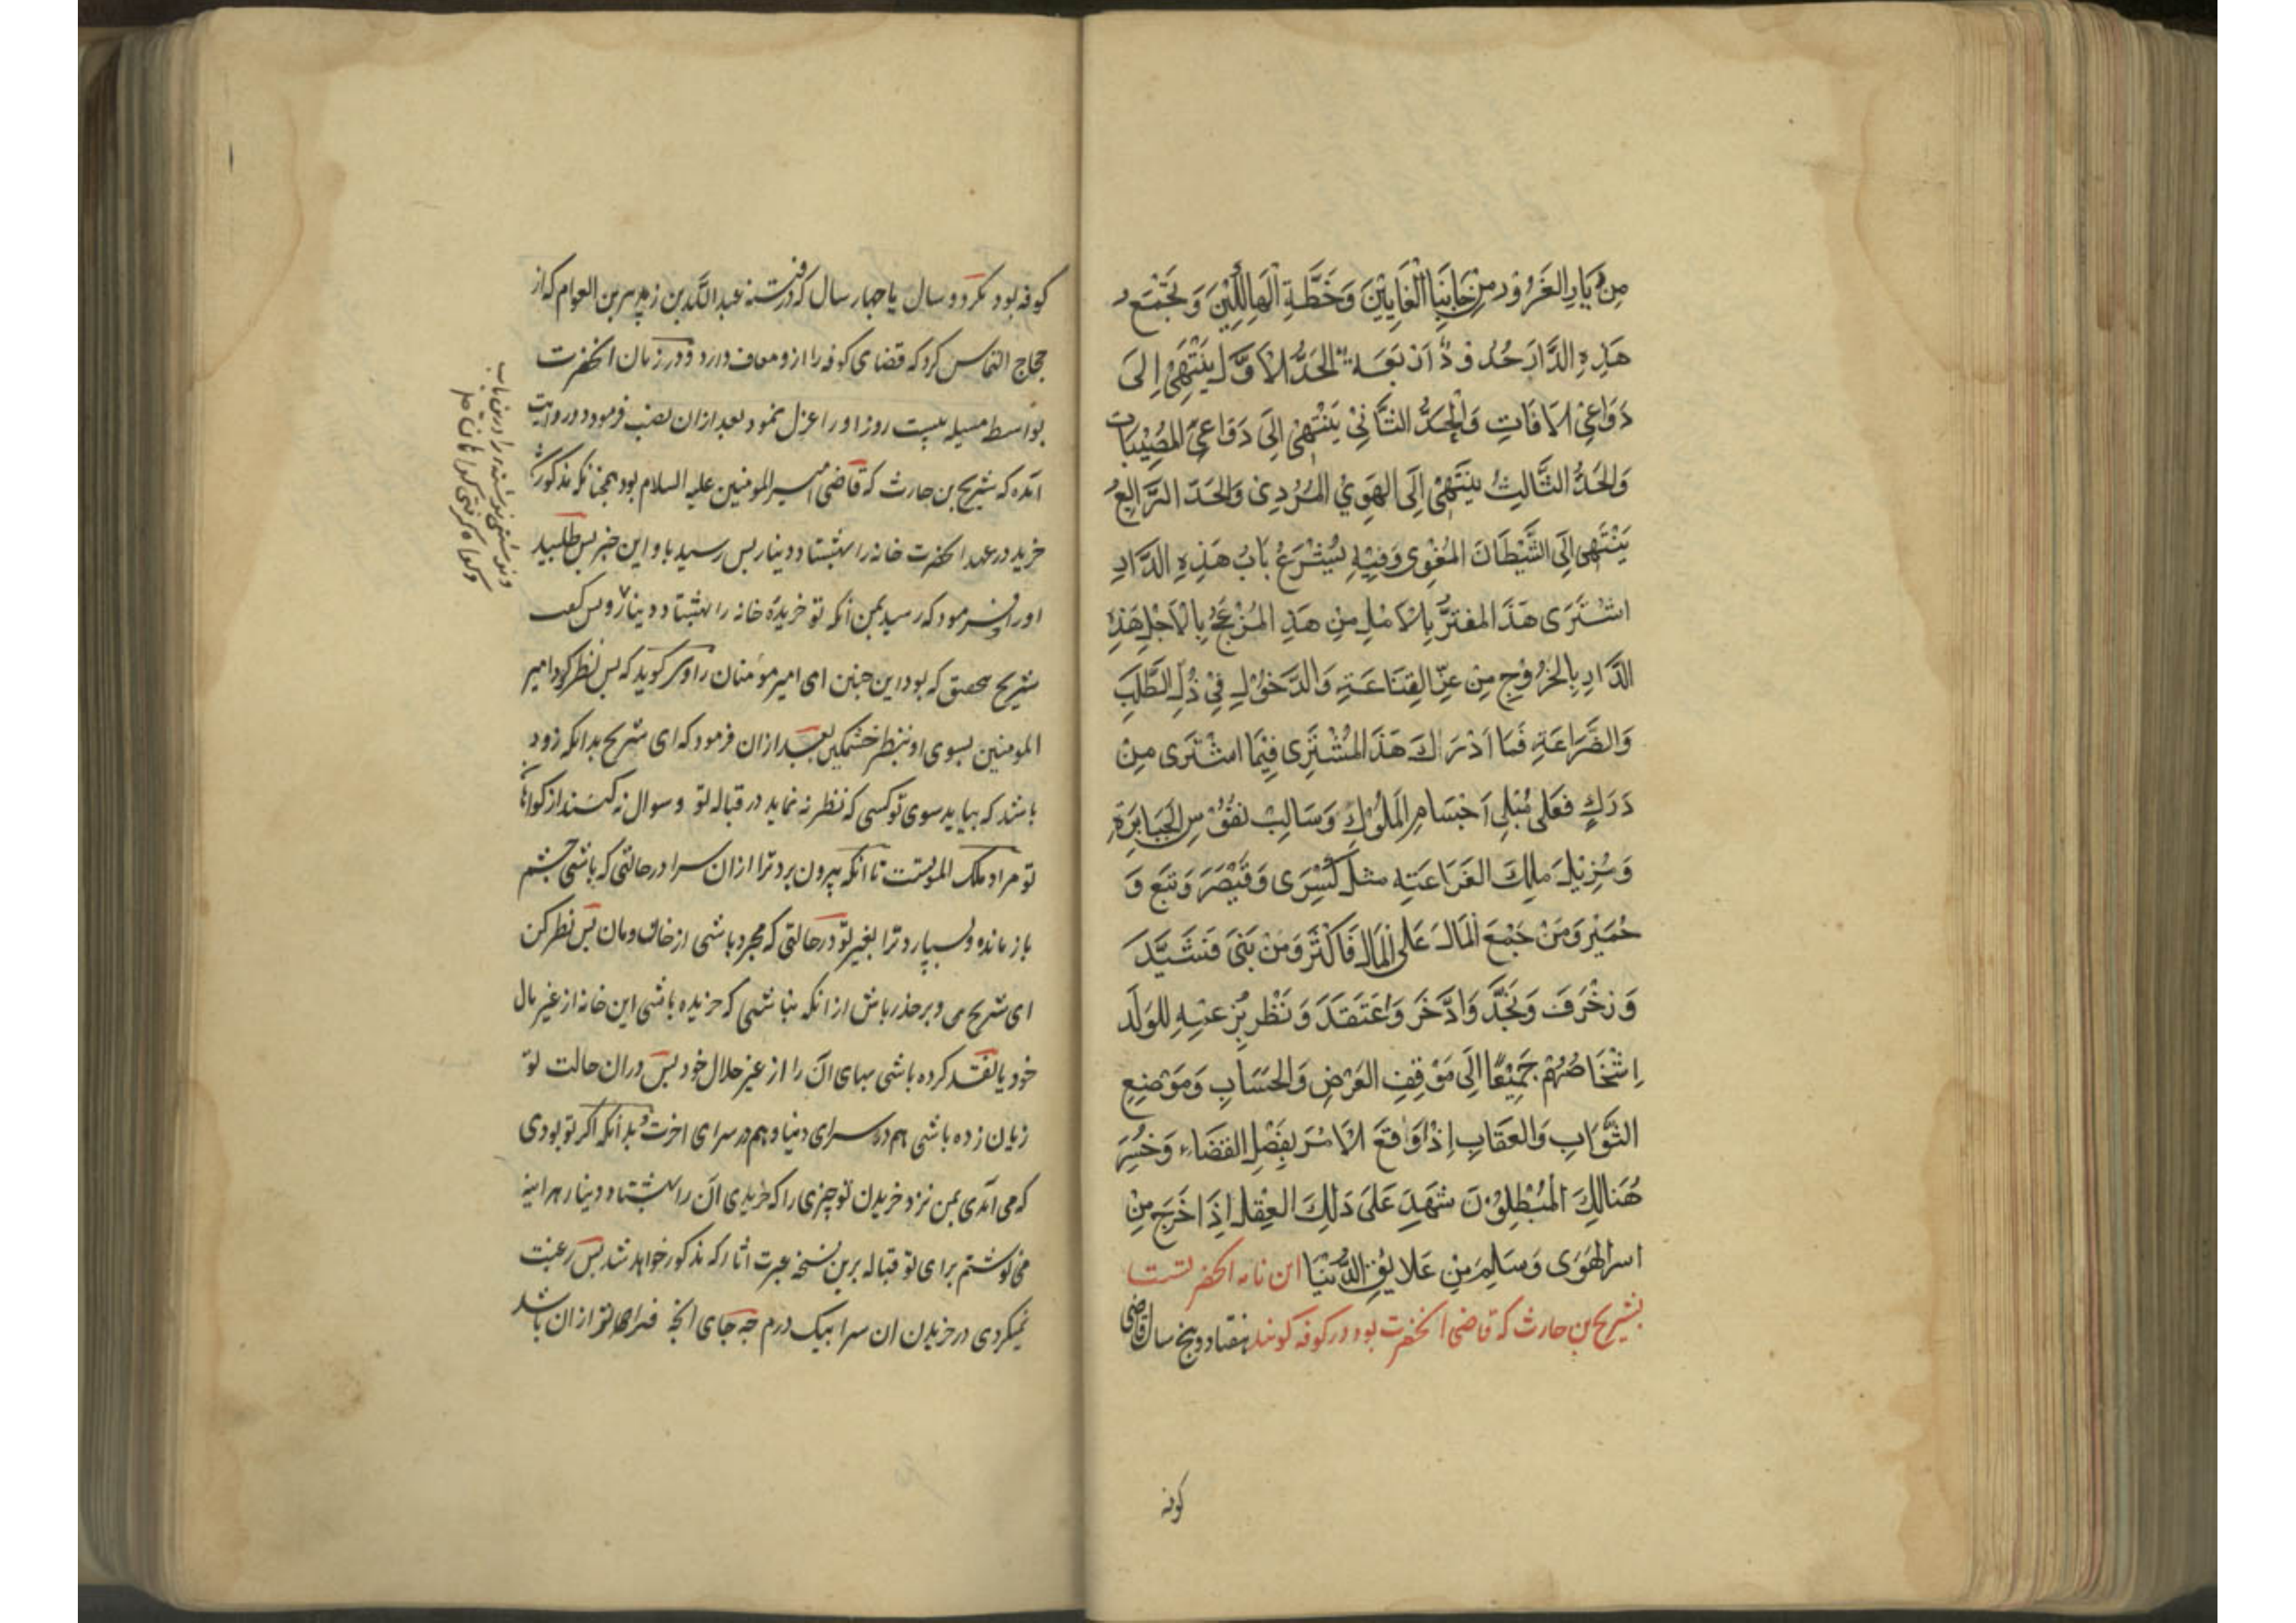 مِنْ دَارِ الغَرُوْرِ مِنْ جَانِبَا الْفَانِيْنَ وَخِطَّةِ الْهَالِكِيْنَ وَتَجْمَعُ
هَذِهِ الدَّارَ حُدُوْدٌ اَرْبَعَةٌ الحَدُّ الاَوَّلُ يَنْتَهِيْ اِلَى
دَوَاعِيْ الاٰفَاتِ وَالْحَدُّ الثَّانِيْ يَنْتَهِيْ اِلَى دَوَاعِيْ المُصِيْبَاتِ
وَالحَدُّ الثَّالِثُ يَنْتَهِيْ اِلَى الهَوِيْ المُرْدِيْ وَالحَدّ الرَّابِعُ
يَنْتَهِى اِلَى الشَّيْطَانَ المُغْوِى وَفِيْهِ يُشْرَعُ بَابُ هَذِهِ الدَّارِ
اشْتَرَى هَذَا المغترُّ بِالاَمْلِ مِنْ هَذِ المُزْعَجُ بِالاَجْلِ هَذِهِ
الدَّارِ بِالخُرُوْجِ مِنْ عِزِّ القَنَاعَتِهِ وَالدَّخُوْلِ فِيْ ذُلِّ الطَّلَبِ
وَالضَّرَاعَةِ فَمَا اَدْرَاكَ هَذَا المُشْتَرِى فِيْمَا اشْتَرَى مِنْ
دَرَكٍ فَعَلى مُبَلِى اَجْسَامِ المَلُوْكِ وَسَالِبْ نفُوْسِ الجَبَابِرَةِ
وَمُزِيْلِ ملِكَ الفَرَاعَتِهِ مثل كَسْرَى وَقَيْصَرَ وَتبَّع وَ
حُمَيْرِ وَمَنْ جَمْعَ المَالَ عَلى المَالِ فَاَكْثَرَ وَمَنْ بَنَى فَشَيَّدَ
وَزَخْرَفَ وَنَجَّدَ وَادَّخَرَ وَاعْتَقَدَ وَنَظْرَ بِزعْمِهِ لِلوَلَدِ
اِشْخَاصُهُمْ جَمِيْعًا اِلَى مَوْقِفِ العَرْضِ وَالحِسَابِ وَمَوْضِعِ
الثَّوَابِ وَالعِقَابِ اِذَا وَقَعَ الاَمْرَ بِفَصْلِ القضَاء وَخَسِرَ
هُنَالِكَ المُبْطِلُوْنَ شَهِدَ عَلَى ذَلِكَ العِقْلِ اِذَا خَرَجَ مِنْ
اسرِ الهَوَى وَسَلِمَ مِنْ عَلَايِقِ الدُّنْيَا این نامه انحضرتست
بشریح بن حارث که قاضی انحضرت بود در کوفه کویند هفتاد و پنج سال قاضی
کوفه
کوفه بود مکر دو سال یا چهار سال که در فتنه عبد الله بن زبیر بن العوام که از
حجاج التماس کرد که قضای کوفه را ازو معاف دارد و در زمان انحضرت
بواسطه مسیله بیست روز او را عزل نمود بعد ازان نصب فرمود و در روایت
امده که شریح بن حارث که قاضی امیر المومنین علیه السلام بود همچنانکه مذکور شد
خرید در عهد انحضرت خانه را بهشتاد دینار بس رسید باو این خبر بس طلبید
او را و فرمود که رسید بمن انکه تو خریدهٔ خانه را بهشتاد دینار بس کفت
شریح بتحقیق که بود این چنین ای امیر مومنان راوی کوید که بس نظر کرد امیر
المومنین بسوی او بنظر خشمکین بعد ازان فرمود که ای شریح بدانکه زود
باشد که بیاید سوی تو کسی که نظر نه نماید در قباله تو و سوال نه کند از کواهان
تو مراد ملک الموتست تا انکه بیرون برد ترا ازان سرا در حالتی که باشی چشم
باز مانده و بسپارد ترا بغیر تو در حالتی که مجرد باشی از خان و مان بس نظر کن
ای شریح می و بر حذر باش از انکه نباشی که خریده باشی این خانه از غیر مال
خود یا نقد کرده باشی بهای ان را از غیر حلال خود بس دران حالت تو
زیان زده باشی هم در سرای دنیا و هم در سرای اخرت و بدانکه اکر تو بودی
که می امدی بمن نزد خریدن تو چیزی را که خریدی ان را بهشتاد دینار هراینه
می نوشتم برای تو قباله برین نسخه عبرت اثار که مذکور خواهد شد بس رغبت
نمیکردی در خریدن ان سرا بیک درم چه جای انچه ازان باشد
و نوشتی نوشته را درین باب
و کواه کرفتی کواهان